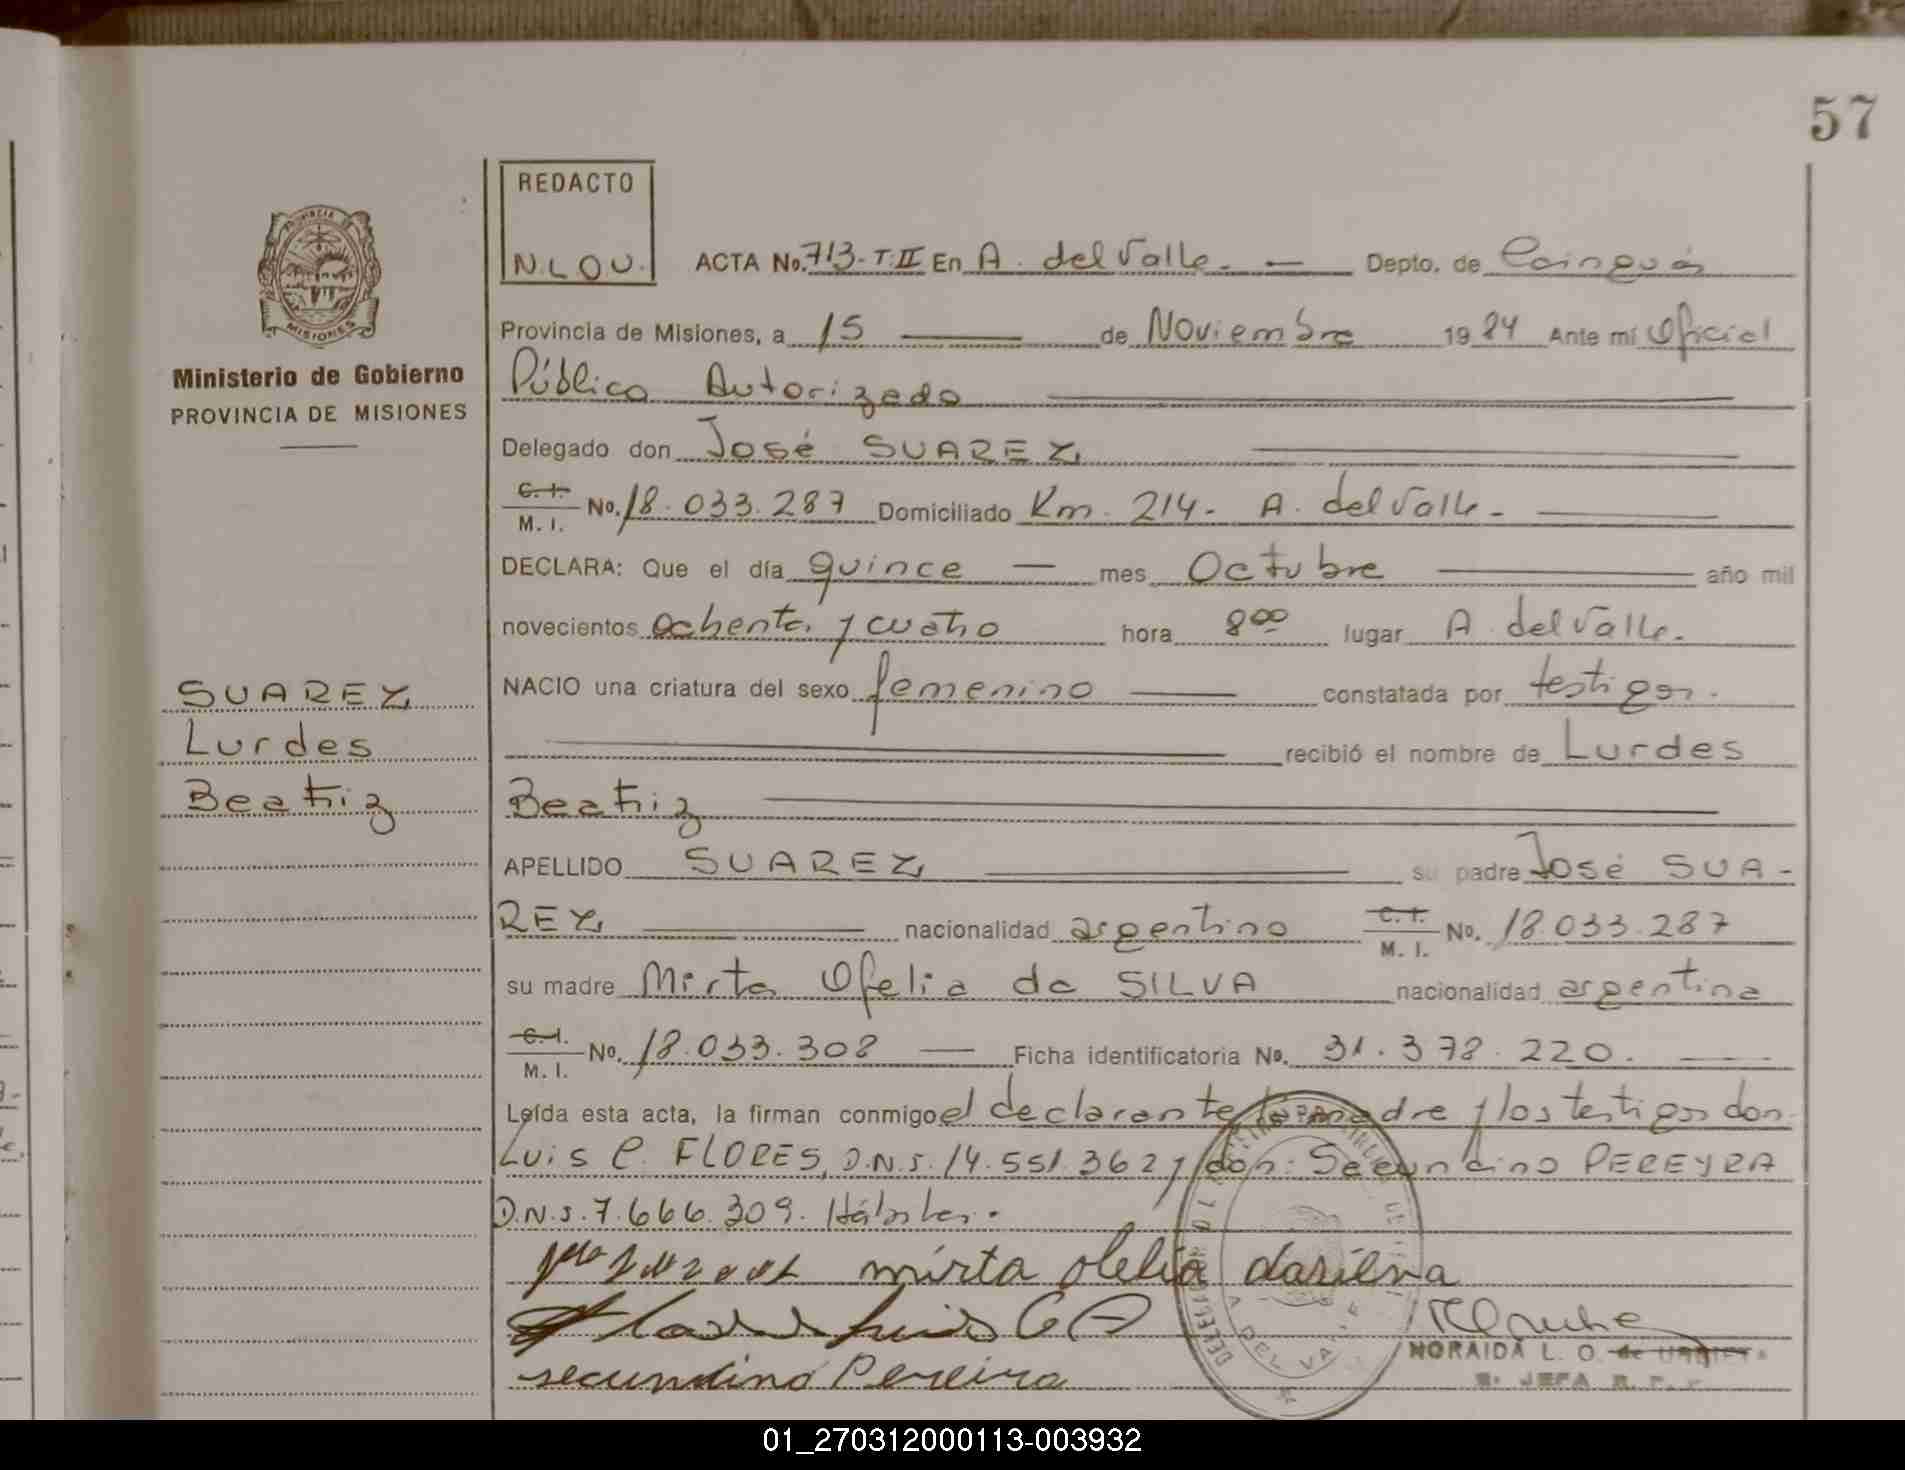 57
REDACTO
N.L.O.U.
ACTA No. 713-T.II En A. del Valle. — Depto. de Cainguás
Provincia de Misiones, a 15 — de Noviembre 1984 Ante mí Oficial
Público Autorizado
Delegado don José SUAREZ
C.I. M.I. No. 18.033.287 Domiciliado Km. 214- A. del Valle-
DECLARA: Que el día quince — mes Octubre — año mil
novecientos ochenta y cuatro hora 8 00 lugar A. del Valle.
NACIO una criatura del sexo femenino — constatada por testigos.
recibió el nombre de Lurdes
Beatriz
APELLIDO SUAREZ — su padre José SUA-
REZ — nacionalidad argentino C.I. M.I. No. 18.033.287
su madre Mirta Ofelia da SILVA nacionalidad argentina
C.I. M.I. No. 18.033.308 — Ficha identificatoria No. 31.378.220.
Leída esta acta, la firman conmigo el declarante, la madre y los testigos don
Luis C. FLORES, D.N.I. 14.551.362 y don: Secundino PEREYRA
D.N.I. 7.666.309. Hábiles.
mirta ofelia dasilva
secundino Pereira
NORAIDA L. O. de URBIETA
JEFA R. P.
A. DEL VALLE
PROVINCIA DE MISIONES
Ministerio de Gobierno
PROVINCIA DE MISIONES
SUAREZ
Lurdes
Beatriz
01_270312000113-003932